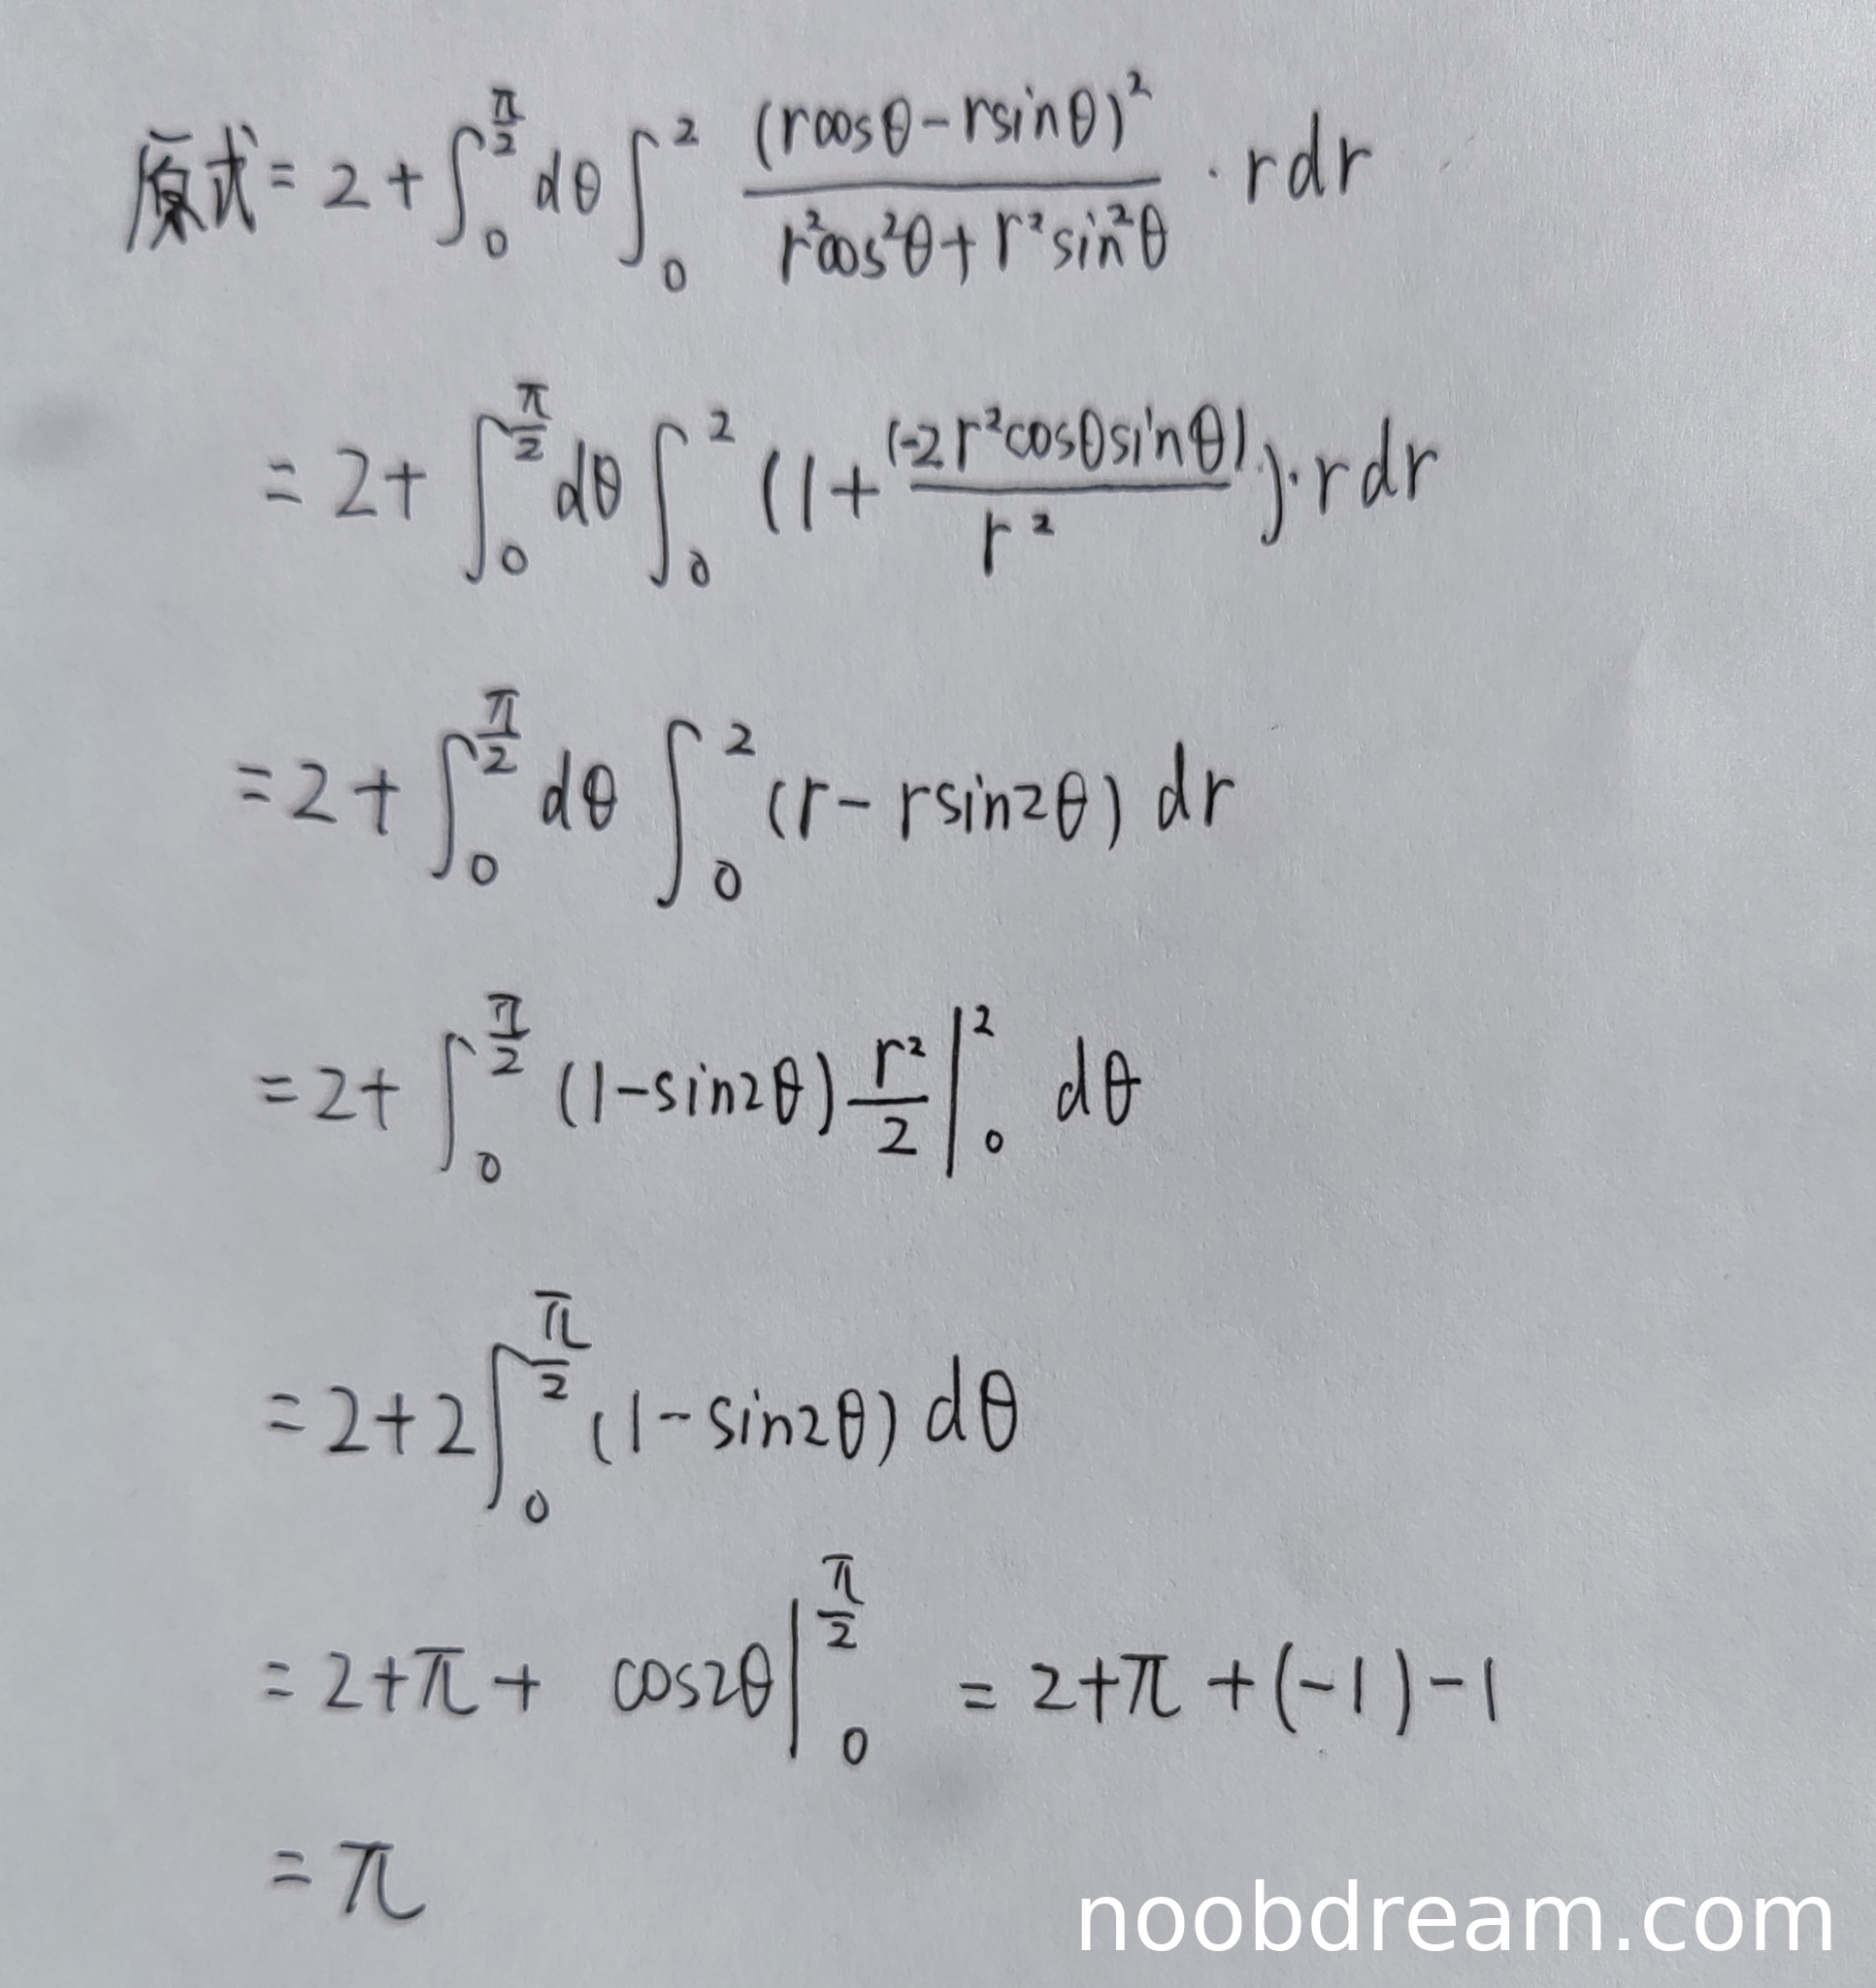 原式 = 2 + ∫₀^(π/2) dθ ∫₀² (rcosθ - rsinθ)² / (r²cos²θ + r²sin²θ) · rdr
= 2 + ∫₀^(π/2) dθ ∫₀² (1 + (-2r²cosθsinθ) / r²) · rdr
= 2 + ∫₀^(π/2) dθ ∫₀² (r - rsin2θ) dr
= 2 + ∫₀^(π/2) (1 - sin2θ) r²/2 |₀² dθ
= 2 + 2 ∫₀^(π/2) (1 - sin2θ) dθ
= 2 + π + cos2θ |₀^(π/2) = 2 + π + (-1) - 1
= π
noobdream.com